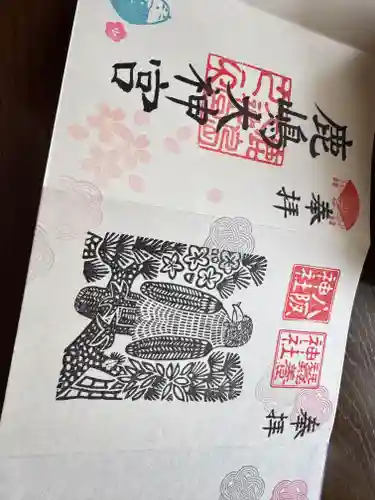 奉拝
鹿嶋大神宮
八阪
神社
神社
奉拝